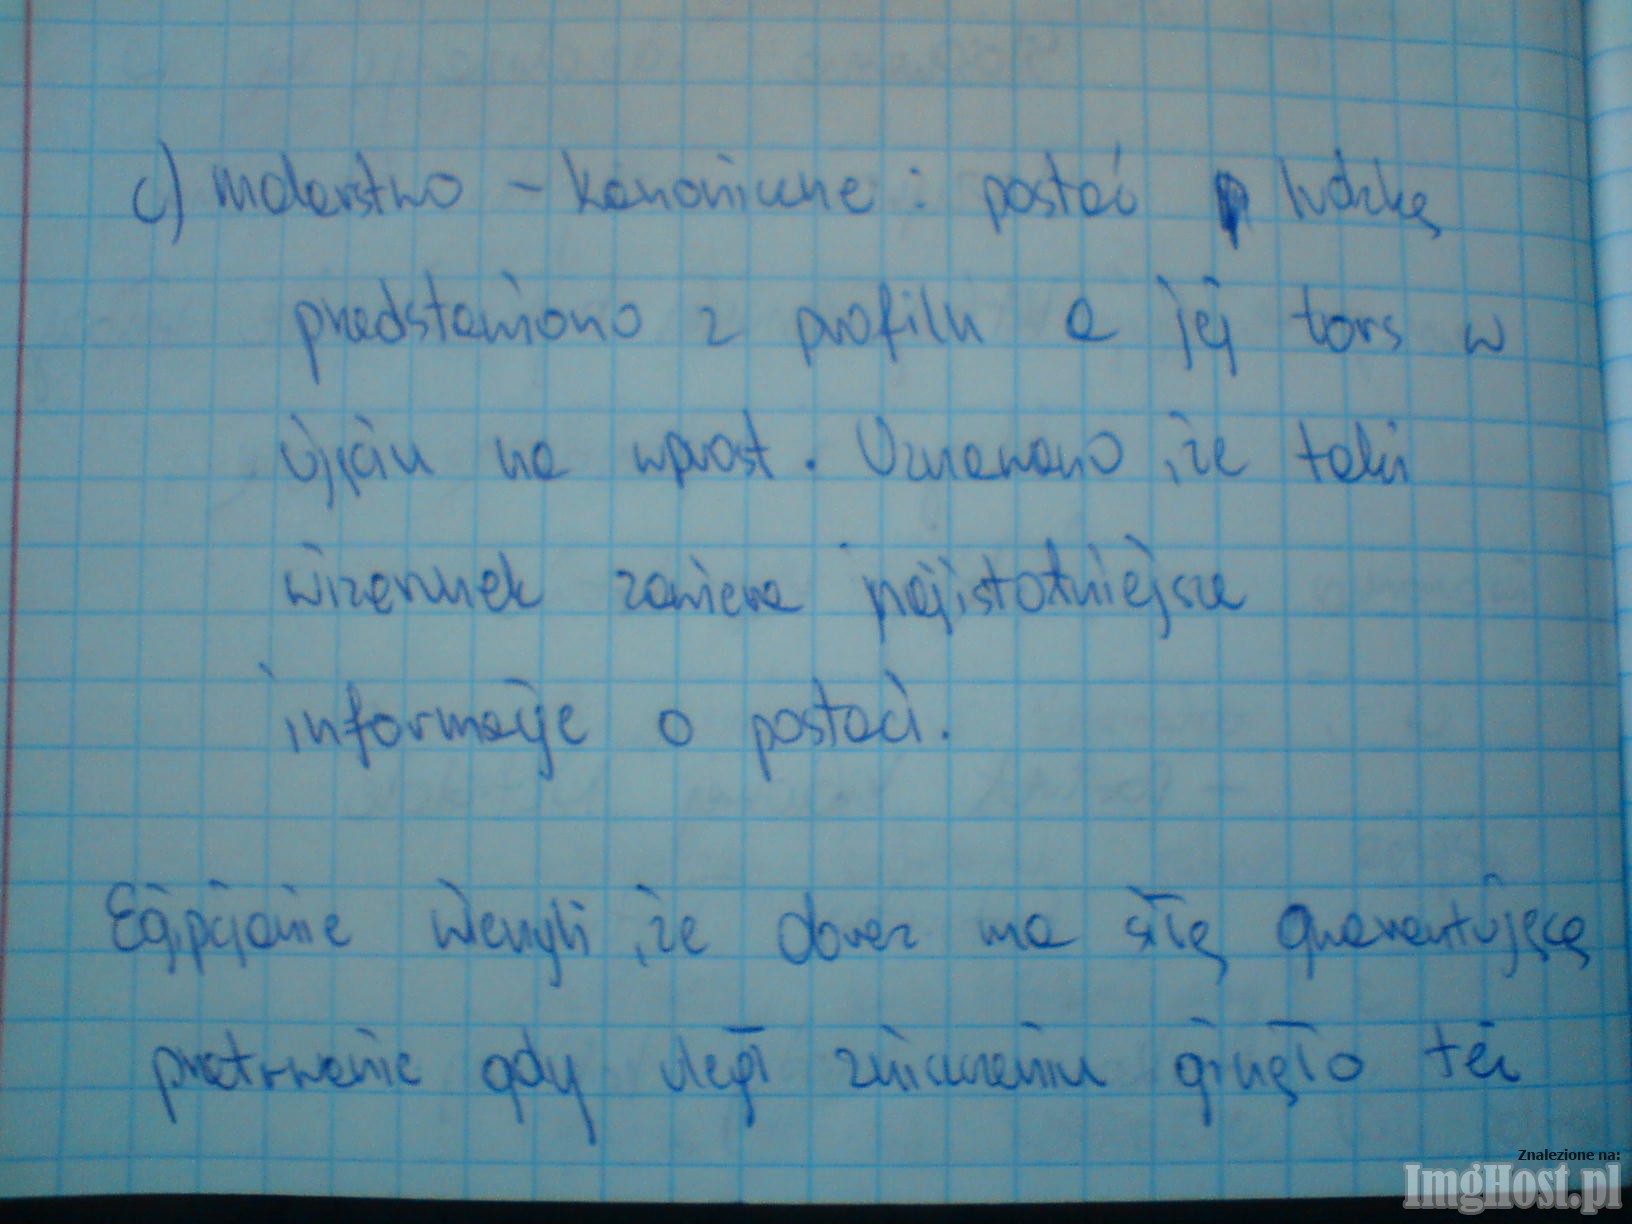 c) malarstwo - kanoniczne : postać ludzką
przedstawiono z profilu a jej tors w
ujęciu na wprost. Uznawano, że taki
wizerunek zawiera najistotniejsze
informacje o postaci.
Egipcjanie wierzyli, że obraz ma siłę gwarantującą
przetrwanie gdy uległ zniszczeniu ginęło też
Znalezione na:
ImgHost.pl